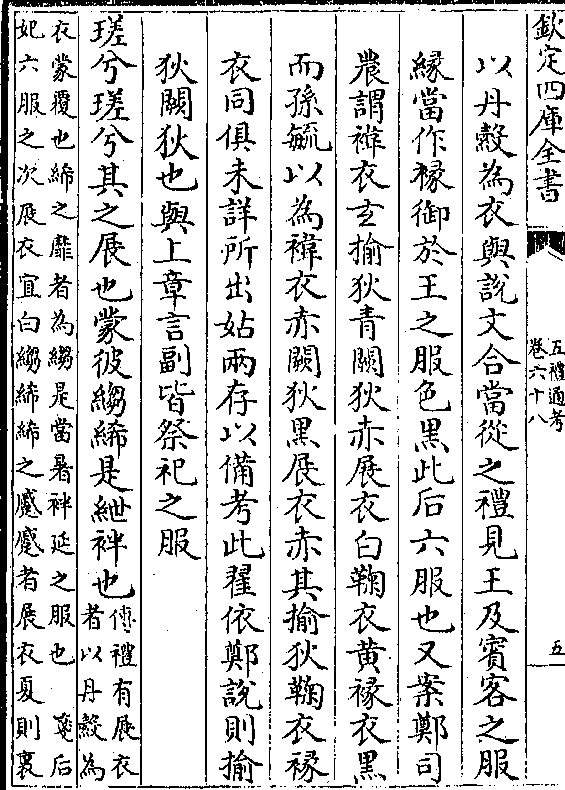 欽定四庫全書
五禮通考
卷六十八
五
以丹縠為衣與說文合當從之禮見王及賓客之服
緣當作褖御於王之服色黑此后六服也又案鄭司
農謂褘衣玄揄狄青闕狄赤展衣白鞠衣黄褖衣黑
而孫毓以為褘衣赤闕狄黑展衣赤其揄狄鞠衣褖
衣同俱未詳所出姑兩存以備考此翟依鄭說則揄
狄闕狄也與上章言副皆祭祀之服
瑳兮瑳兮其之展也蒙彼縐絺是紲袢也
傳禮有展衣
者以丹縠為
衣蒙覆也絺之靡者為縐是當暑袢延之服也 箋后
妃六服之次展衣宜白縐絺絺之蹙蹙者展衣夏則裏